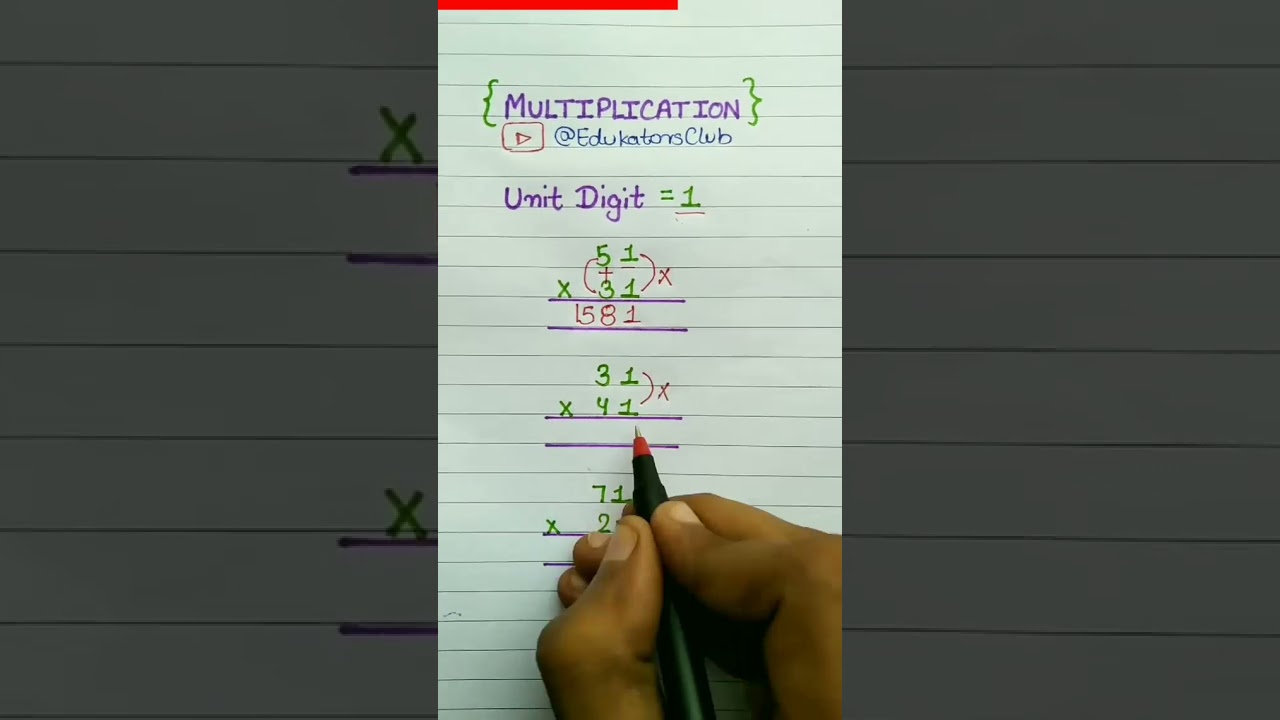 { MULTIPLICATION }
@EdukatorsClub
Unit Digit = 1
5 1
+
x 3 1
x
1581
3 1
x 4 1
x
71
x 2
x
x